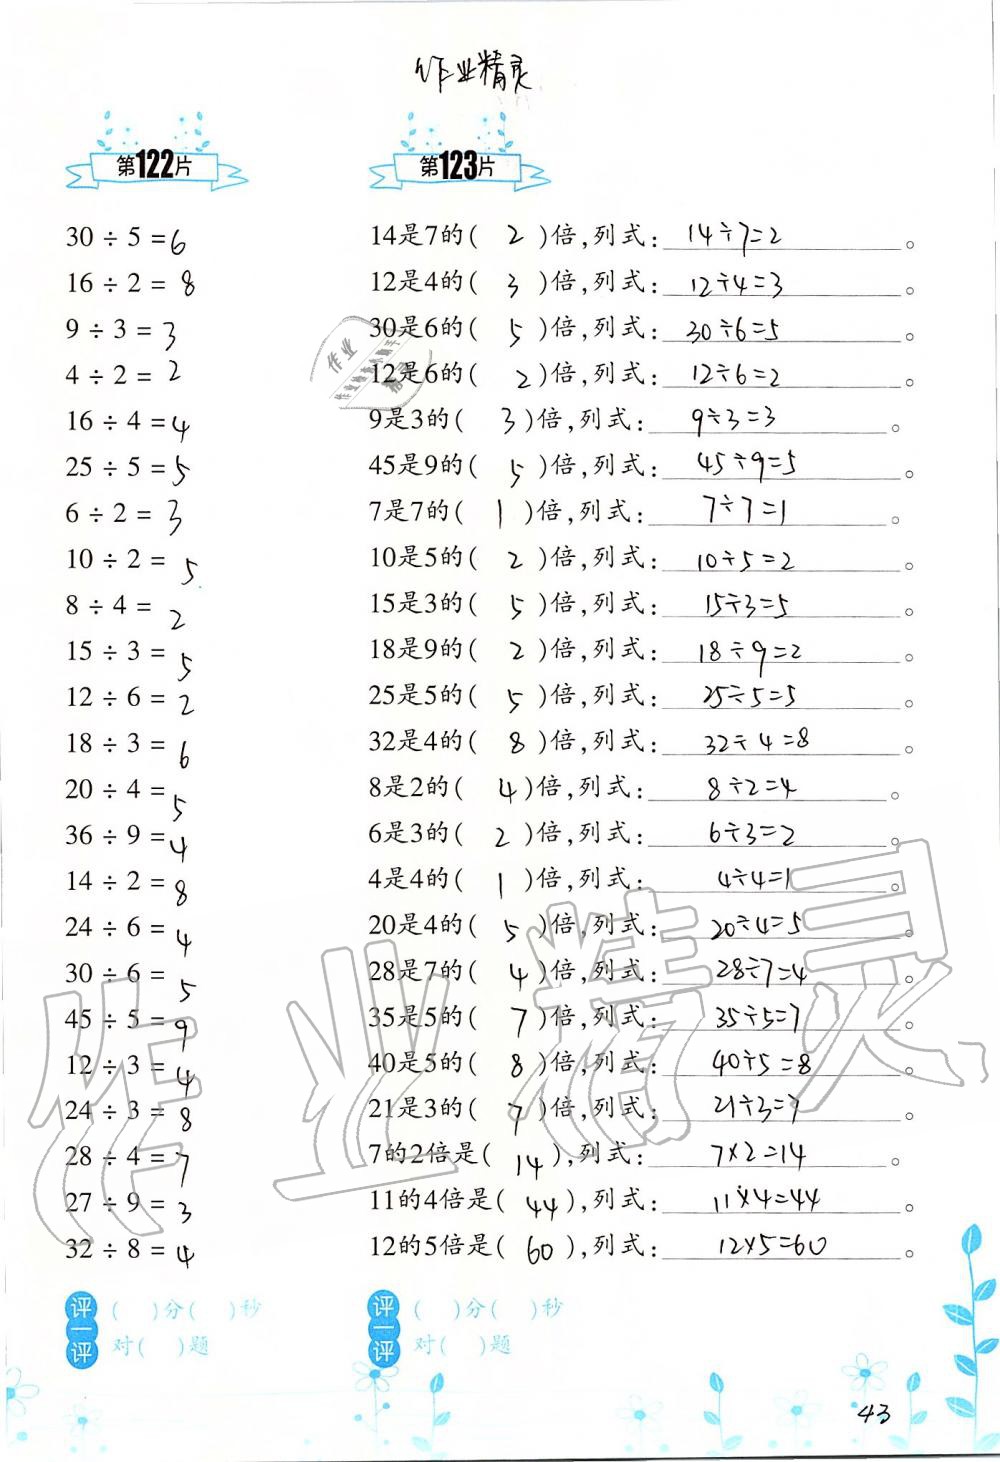 作业精灵
第122片
30 ÷ 5 = 6
16 ÷ 2 = 8
9 ÷ 3 = 3
4 ÷ 2 = 2
16 ÷ 4 = 4
25 ÷ 5 = 5
6 ÷ 2 = 3
10 ÷ 2 = 5
8 ÷ 4 = 2
15 ÷ 3 = 5
12 ÷ 6 = 2
18 ÷ 3 = 6
20 ÷ 4 = 5
36 ÷ 9 = 4
14 ÷ 2 = 8
24 ÷ 6 = 4
30 ÷ 6 = 5
45 ÷ 5 = 9
12 ÷ 3 = 4
24 ÷ 3 = 8
28 ÷ 4 = 7
27 ÷ 9 = 3
32 ÷ 8 = 4
评一评
( )分( )秒
对( )题
第123片
14是7的( 2 )倍,列式: 14÷7=2 。
12是4的( 3 )倍,列式: 12÷4=3 。
30是6的( 5 )倍,列式: 30÷6=5 。
12是6的( 2 )倍,列式: 12÷6=2 。
9是3的( 3 )倍,列式: 9÷3=3 。
45是9的( 5 )倍,列式: 45÷9=5 。
7是7的( 1 )倍,列式: 7÷7=1 。
10是5的( 2 )倍,列式: 10÷5=2 。
15是3的( 5 )倍,列式: 15÷3=5 。
18是9的( 2 )倍,列式: 18÷9=2 。
25是5的( 5 )倍,列式: 25÷5=5 。
32是4的( 8 )倍,列式: 32÷4=8 。
8是2的( 4 )倍,列式: 8÷2=4 。
6是3的( 2 )倍,列式: 6÷3=2 。
4是4的( 1 )倍,列式: 4÷4=1 。
20是4的( 5 )倍,列式: 20÷4=5 。
28是7的( 4 )倍,列式: 28÷7=4 。
35是5的( 7 )倍,列式: 35÷5=7 。
40是5的( 8 )倍,列式: 40÷5=8 。
21是3的( 7 )倍,列式: 21÷3=7 。
7的2倍是( 14 ),列式: 7×2=14 。
11的4倍是( 44 ),列式: 11×4=44 。
12的5倍是( 60 ),列式: 12×5=60 。
评一评
( )分( )秒
对( )题
43
作业精灵